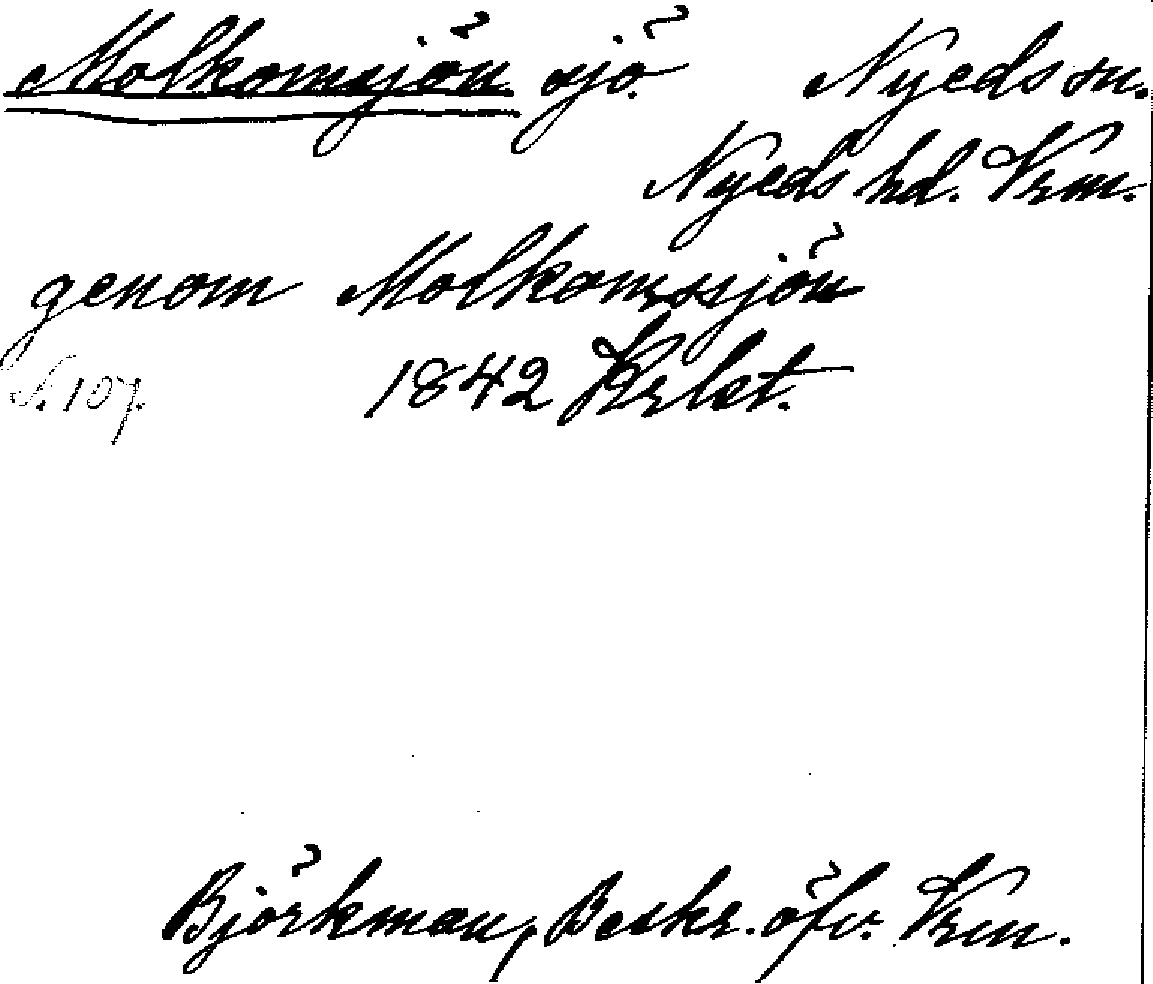 Molkomsjön sjö. Nyeds sn.
Nyeds hd. Vrm.
genom Molkomssjön
1842 Krlst.
S. 107.
Björkman, Beskr. öfv. Vrm.